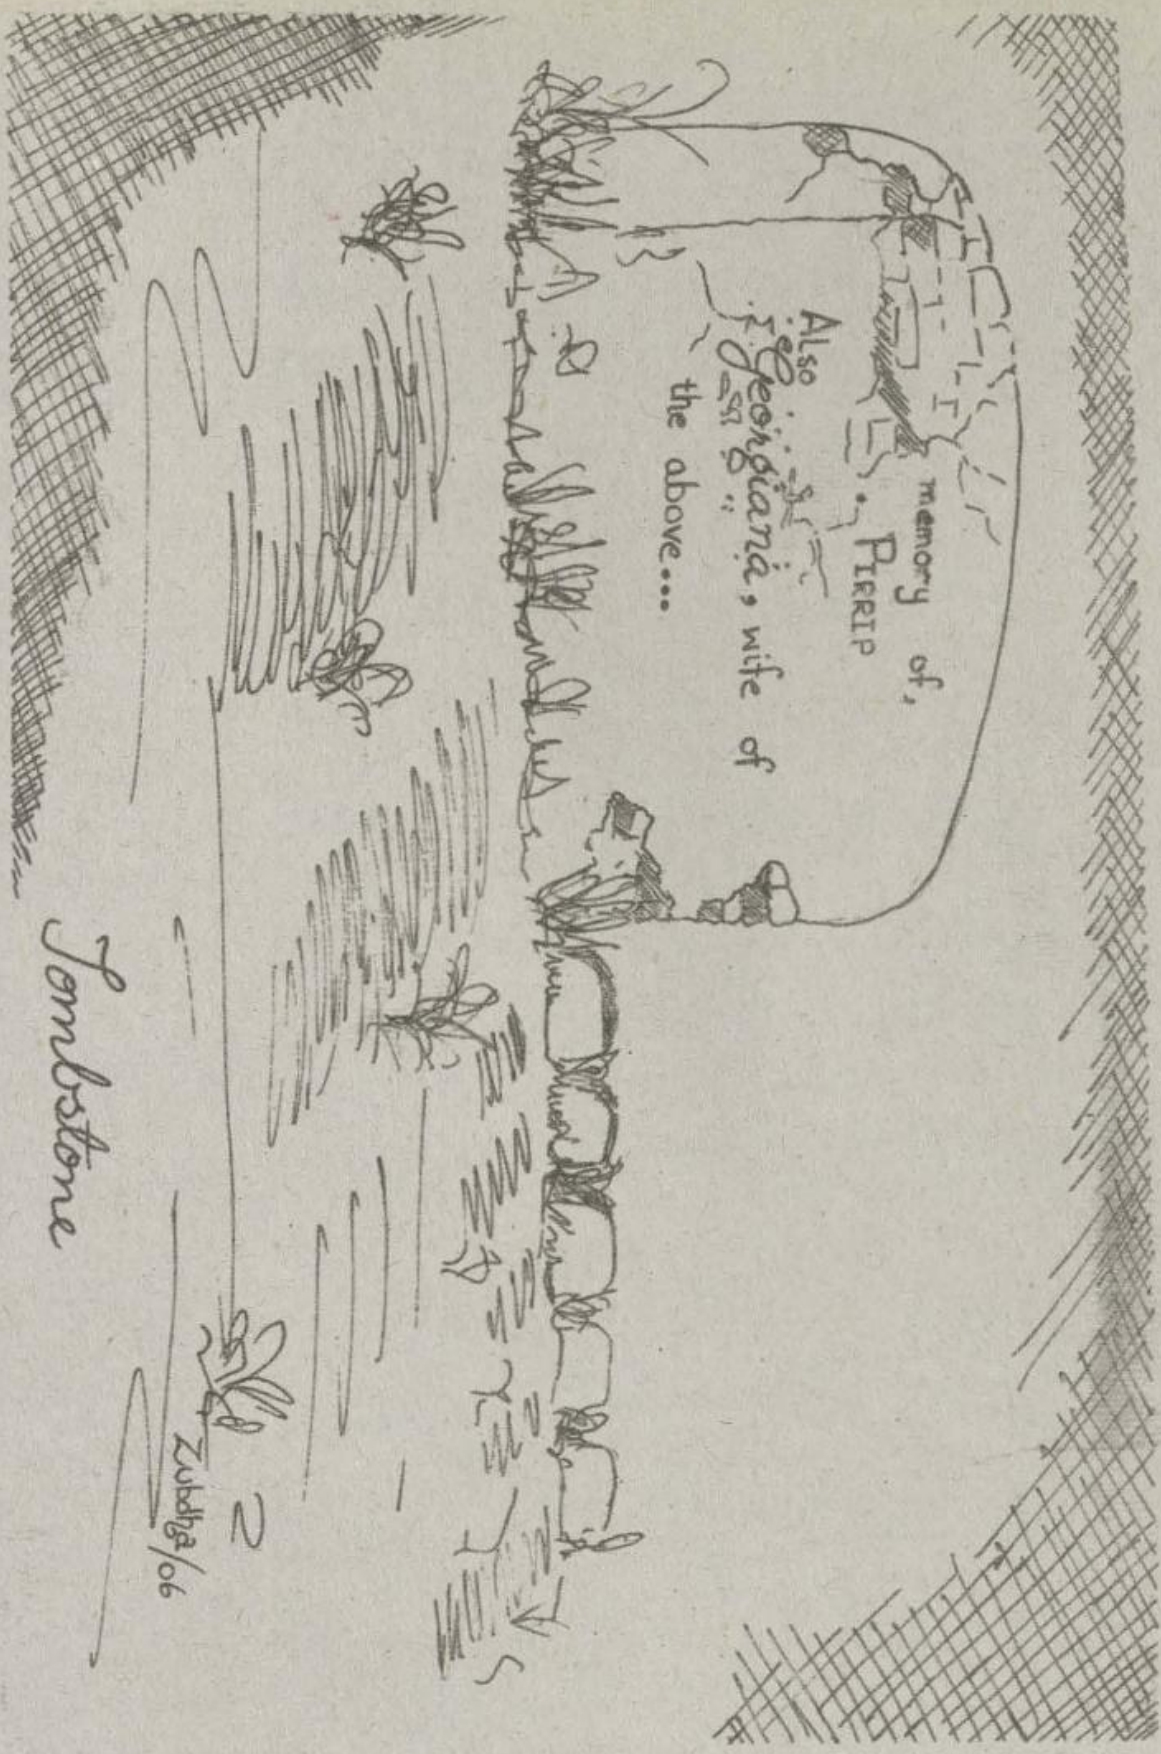 memory of,
. PIRRIP
ALSO
Georgiana, wife of
the above...
Zubdha/06
Tombstone